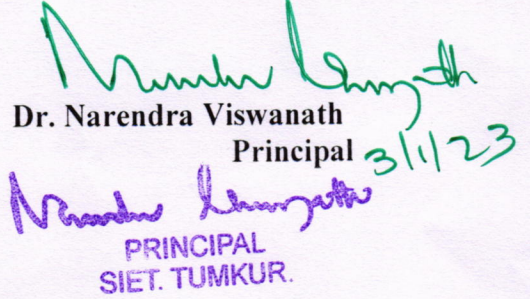 Dr. Narendra Viswanath
Principal 3/1/23
PRINCIPAL
SIET. TUMKUR.